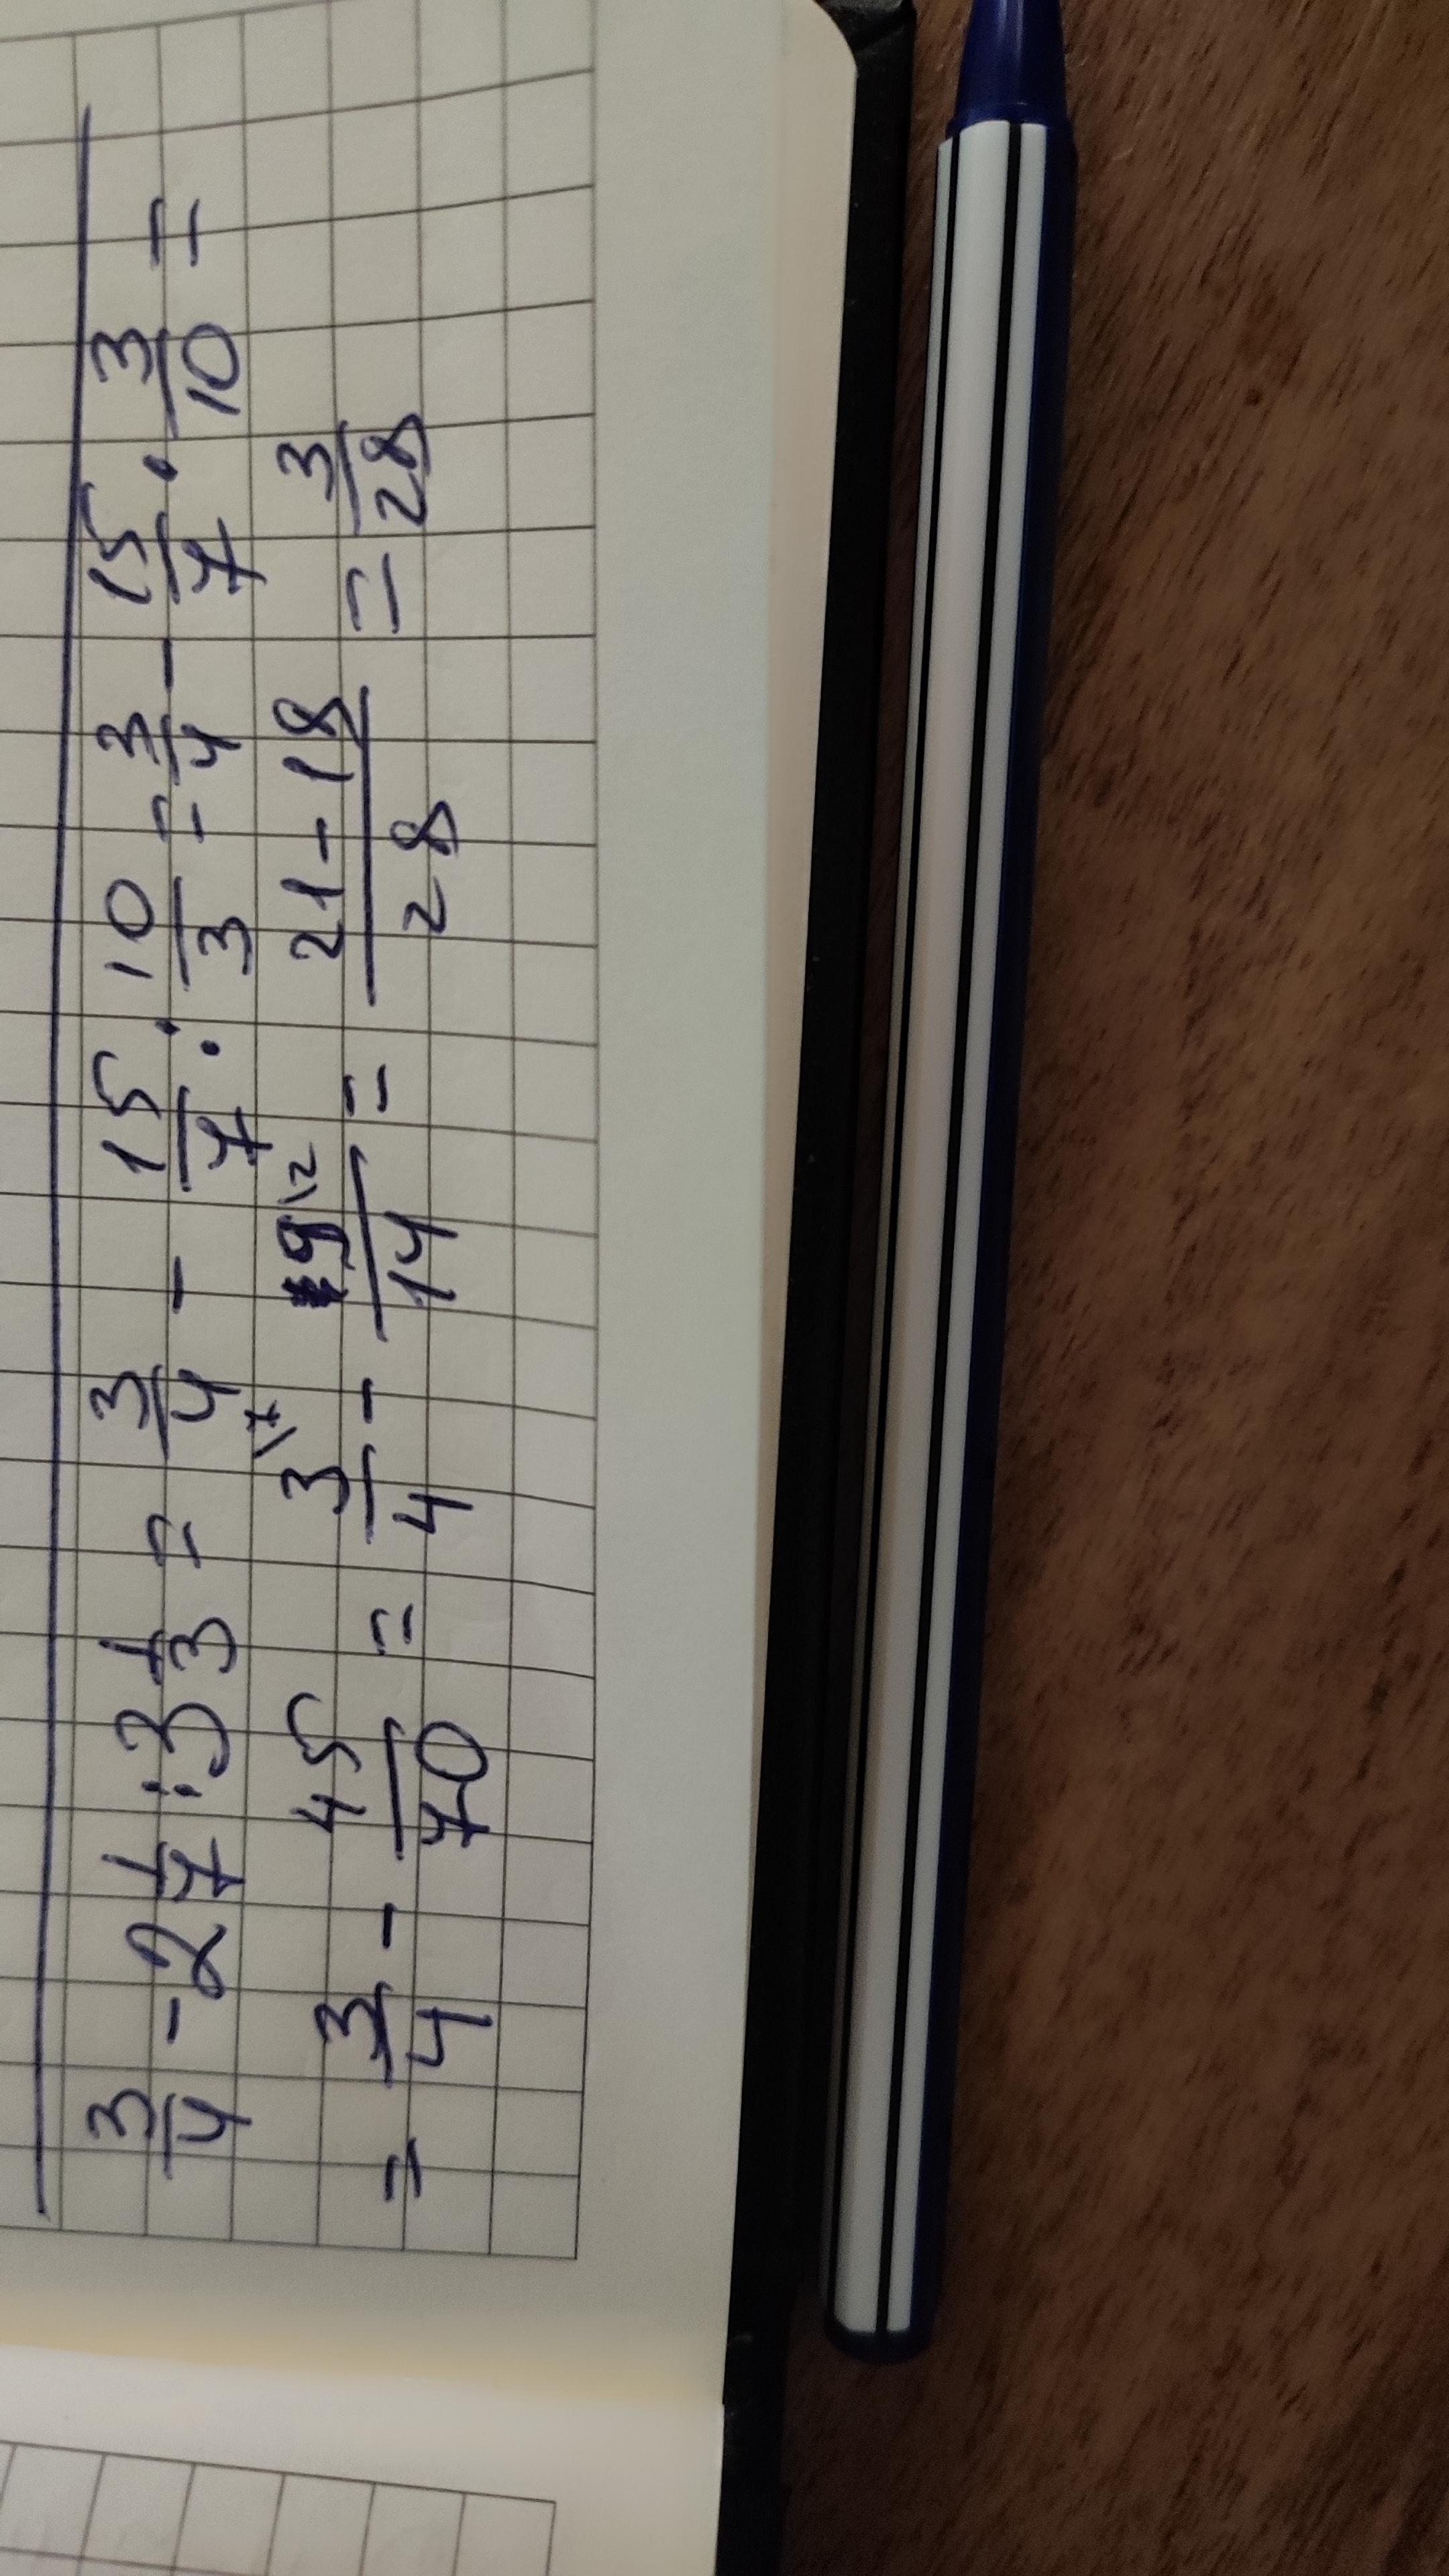 3/4 - 2 1/7 : 3 1/3 = 3/4 - 15/7 : 10/3 = 3/4 - 15/7 · 3/10 =
= 3/4 - 45/70 = 3\7/4 - 9\2/14 = 21-18/28 = 3/28